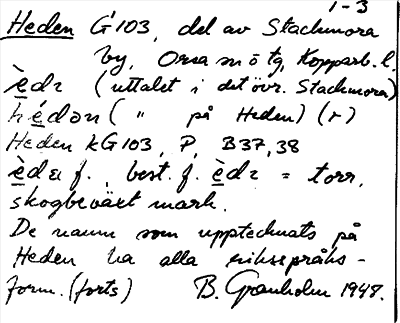 1-3
Heden G'103, del av Stackmora
by, Orsa sn o tg, Kopparb. l.
èdɛ (uttalet i det övr. Stackmora)
hédon ( " på Heden) (r)
Heden kG103, P, B37,38
èdɛ f., best. f. èdɛ = torr,
skogbeväxt mark.
De namn som upptecknats på
Heden ha alla riksspråks-
form. (forts) B. Granholm 1948.